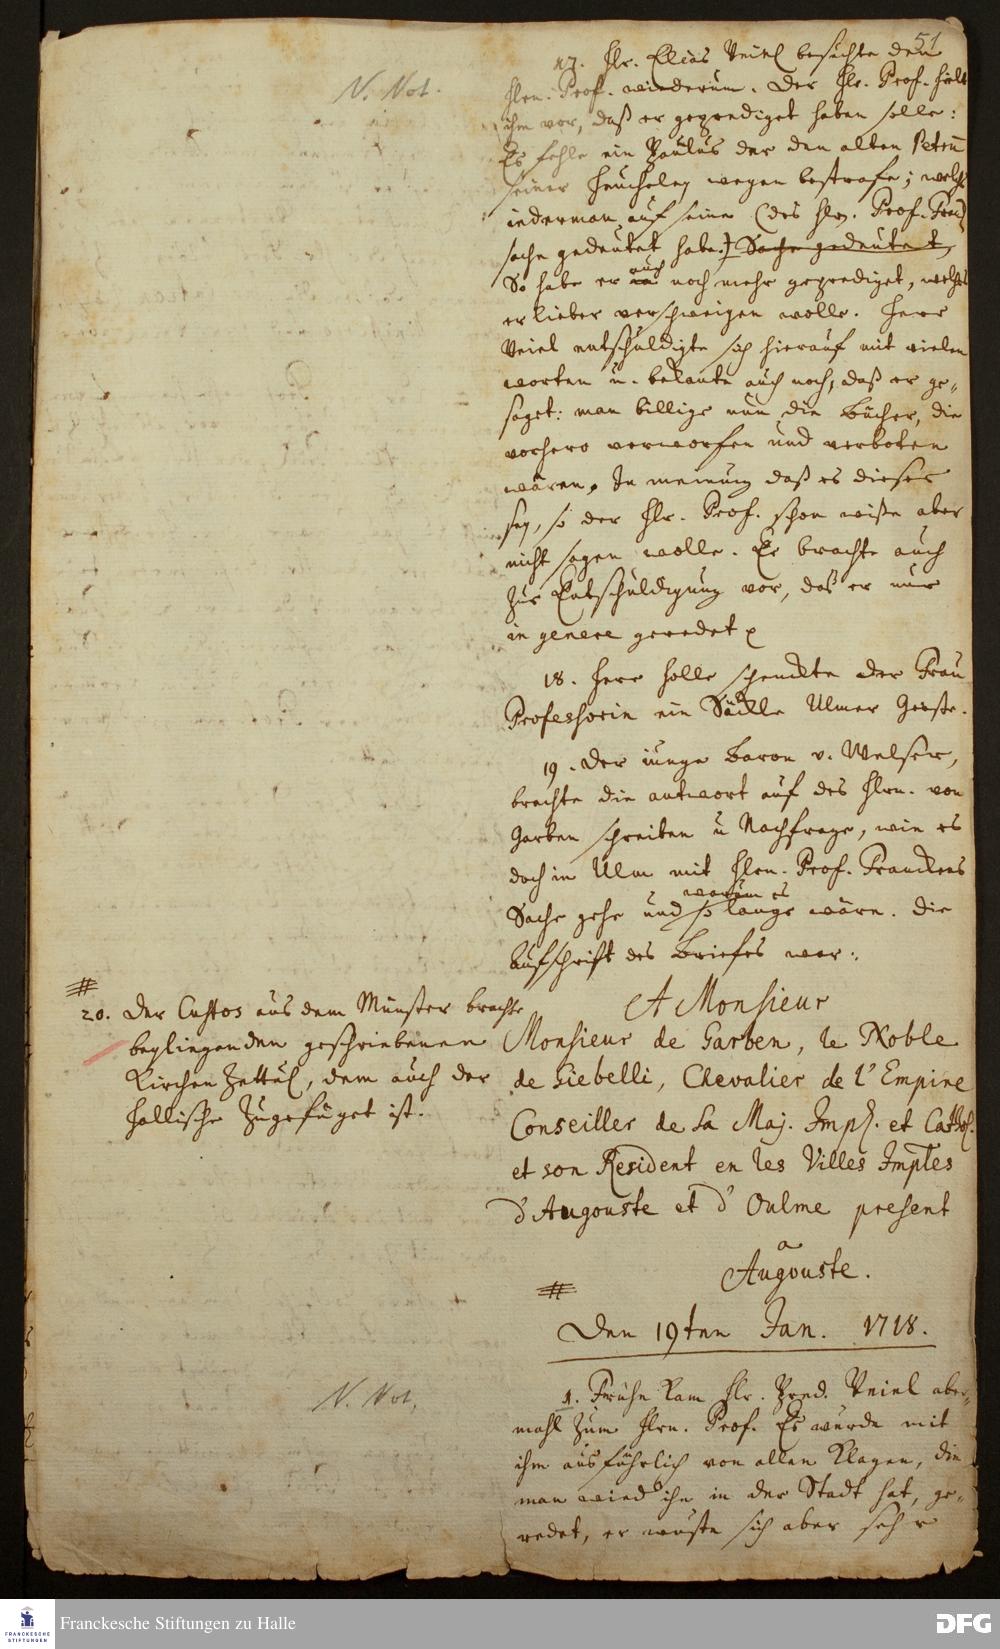 51
N. Not.
17. Hr. Elias Veiel besuchte den
Hrn. Prof. wiederum. Der Hr. Prof. hielt
ihm vor, daß er geprediget haben solle:
Es fehle ein Paulus der den alten Petrum
seiner Heucheley wegen bestrafe; welches
iederman auf seine (des Hrn. Prof. Fr.)
sache gedeutet habe.) Sache gedeutet,
So habe er auch noch mehr geprediget, welches
er lieber verschweigen wolle. Herr
Veiel entschuldigte sich hierauf mit vielen
worten u. bekante auch noch, daß er ge-
saget: man billige nun die Bücher, die
vorhero verworfen und verboten
wären, In meinung daß es dieses
sey, so der Hr. Prof. schon wiße aber
nicht sagen wolle. Er brachte auch
zur Entschuldigung vor, das er nur
in genere geredet
18. Herr Holle schenckte der Frau
Professorin ein Säckle Ulmer Gerste.
19. Der iunge Baron v. Welser,
brachte die antwort auf des Hrn. von
Garben schreiben u Nachfrage, wie es
doch in Ulm mit Hrn. Prof. Franckens
Sache gehe und warum es so lange wäre. Die
Aufschrift des Briefes war:
A Monsieur
Monsieur de Garben, le Noble
de Giebelli, Chevalier de l'Empire
Conseiller de La Maj. Imp. et Cathol.
et son Resident en les Villes Imples
d'Augouste et d'Oulme present
a
Augouste.
#
20. Der Custos aus dem Münster brachte
beyliegenden geschriebenen
Kirchen Zettul, dem auch der
Hallische zugefüget ist.
#
Den 19ten Jan. 1718.
N. Not.
1. Frühe kam Hr. Pred. Veiel aber-
mahl zum Hrn. Prof. Es wurde mit
ihm ausführlich von allen Klagen, die
man wieder ihn in der Stadt hat, ge-
redet, er wuste sich aber sehr
Franckesche Stiftungen zu Halle
FRANCKESCHE
STIFTUNGEN
DFG